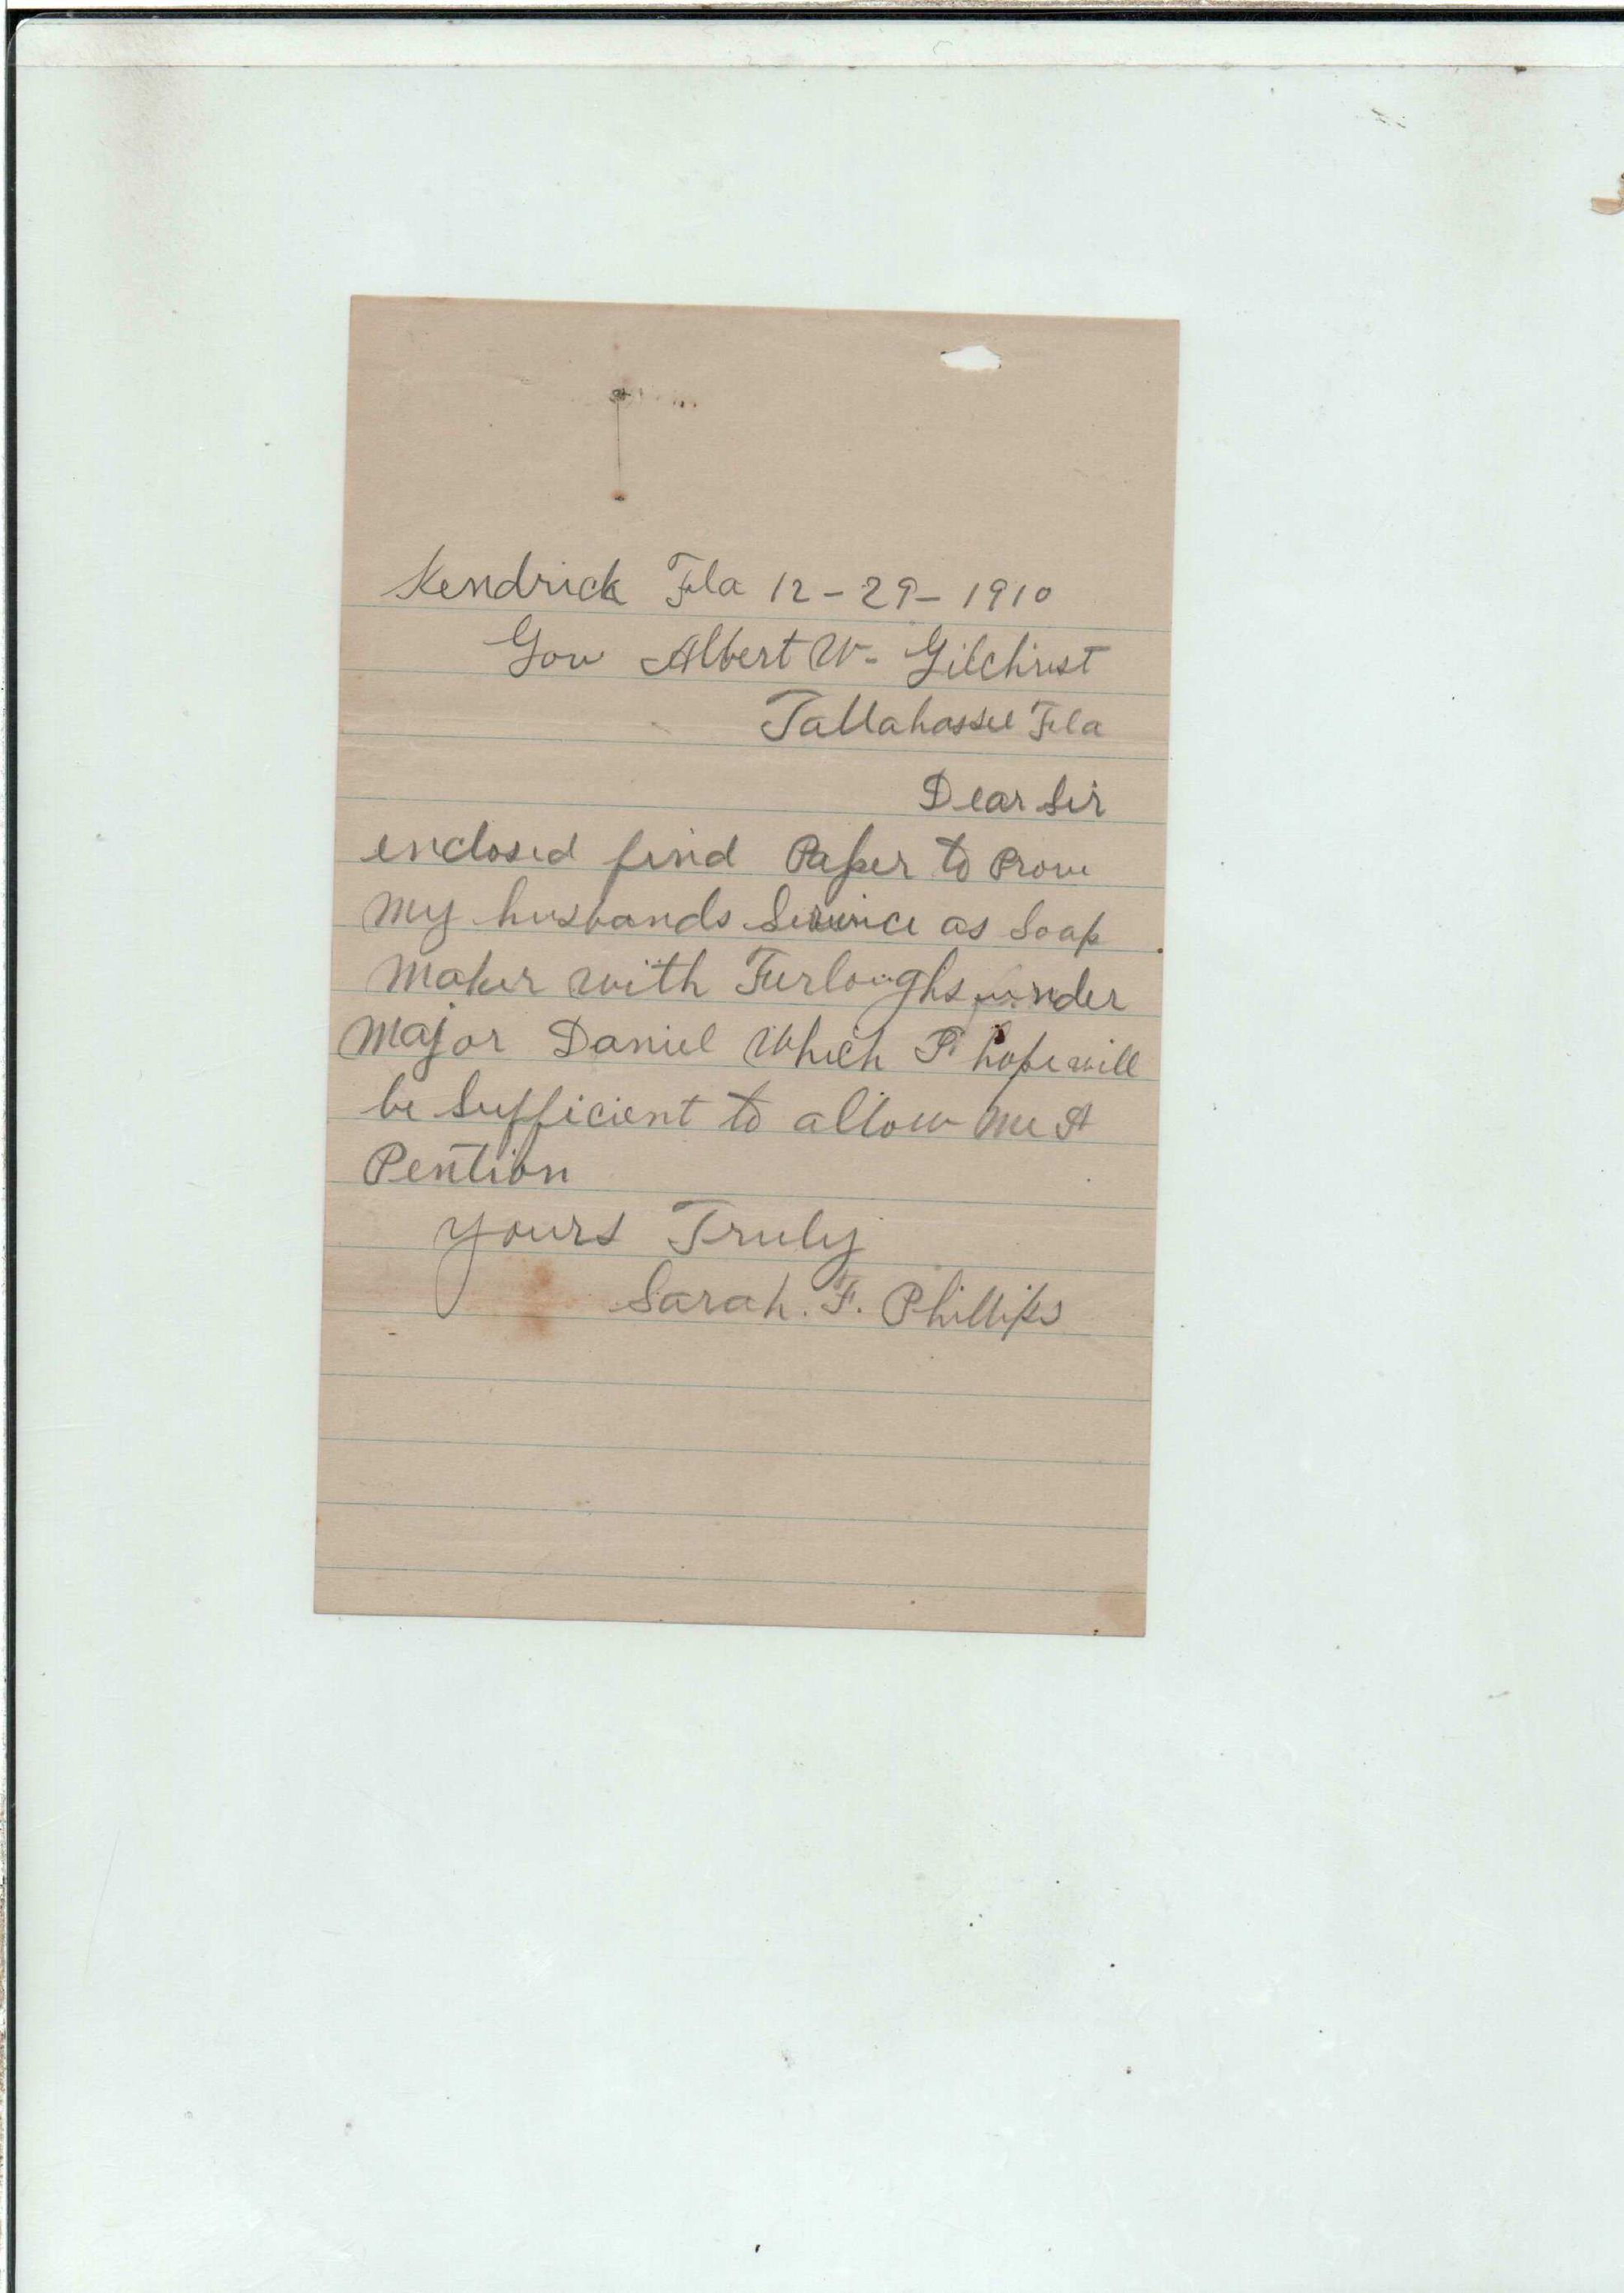 Kendrick Fla 12-29-1910
Gov Albert W. Gilchrist
Tallahassee Fla
Dear Sir
enclosed find Paper to Prove
My husbands Service as Soap
Maker with Furloughs under
Major Daniel Which I hope will
be Sufficient to allow Me A
Pention
yours Truly
Sarah. F. Phillips